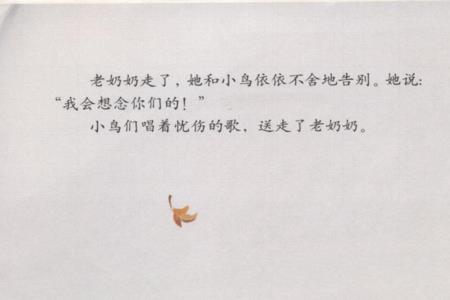 老奶奶走了，她和小鸟依依不舍地告别。她说：
“我会想念你们的！”
小鸟们唱着忧伤的歌，送走了老奶奶。